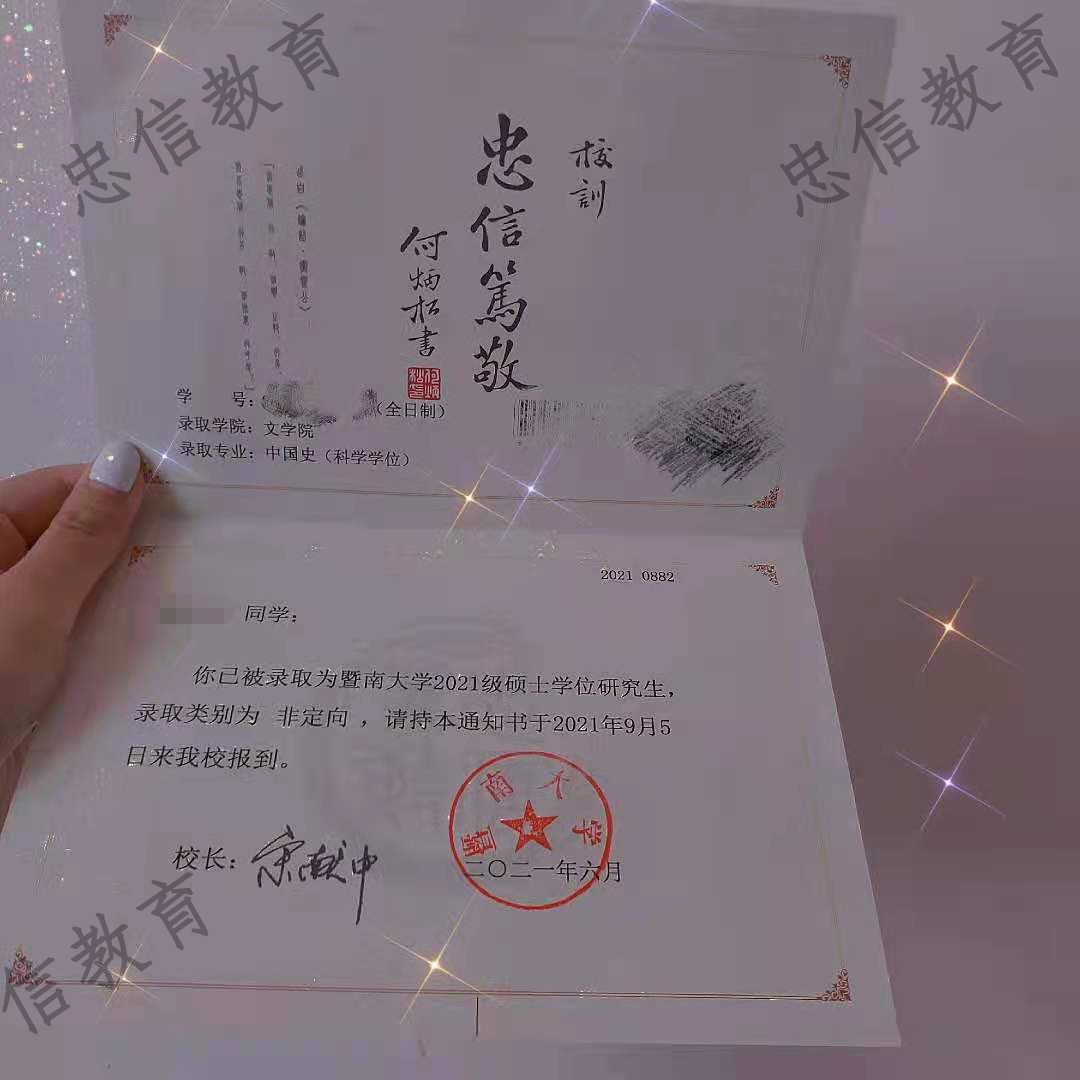 忠信教育
忠信教育
校訓
忠信篤敬
何炳松書
学 号：
（全日制）
录取学院：文学院
录取专业：中国史（科学学位）
2021 0882
同学：
你已被录取为暨南大学2021级硕士学位研究生，
录取类别为 非定向 ，请持本通知书于2021年9月5
日来我校报到。
暨南大学
校长：宋献中
二〇二一年六月
信教育